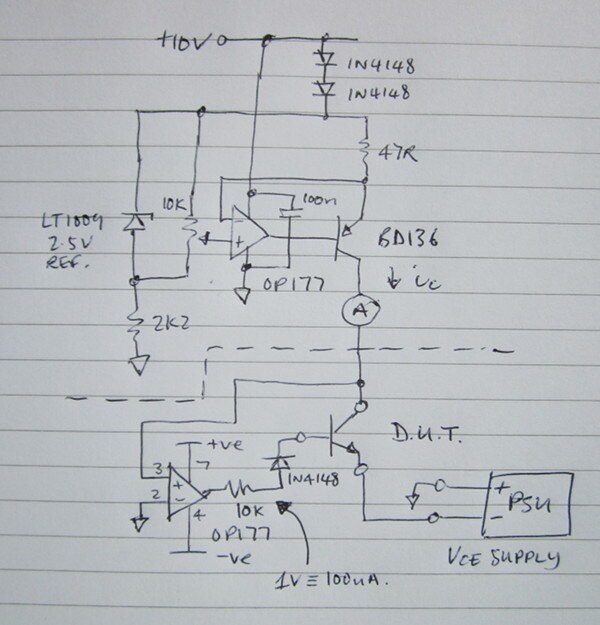 +10V
1N4148
1N4148
47R
10K
100n
LT1009
2.5V
REF.
-
+
BD136
OP177
ic
A
2K2
+ve
D.U.T.
3
7
+
2
-
1N4148
10K
4
OP177
-ve
+
PSU
-
VCE SUPPLY
1V≡100uA.